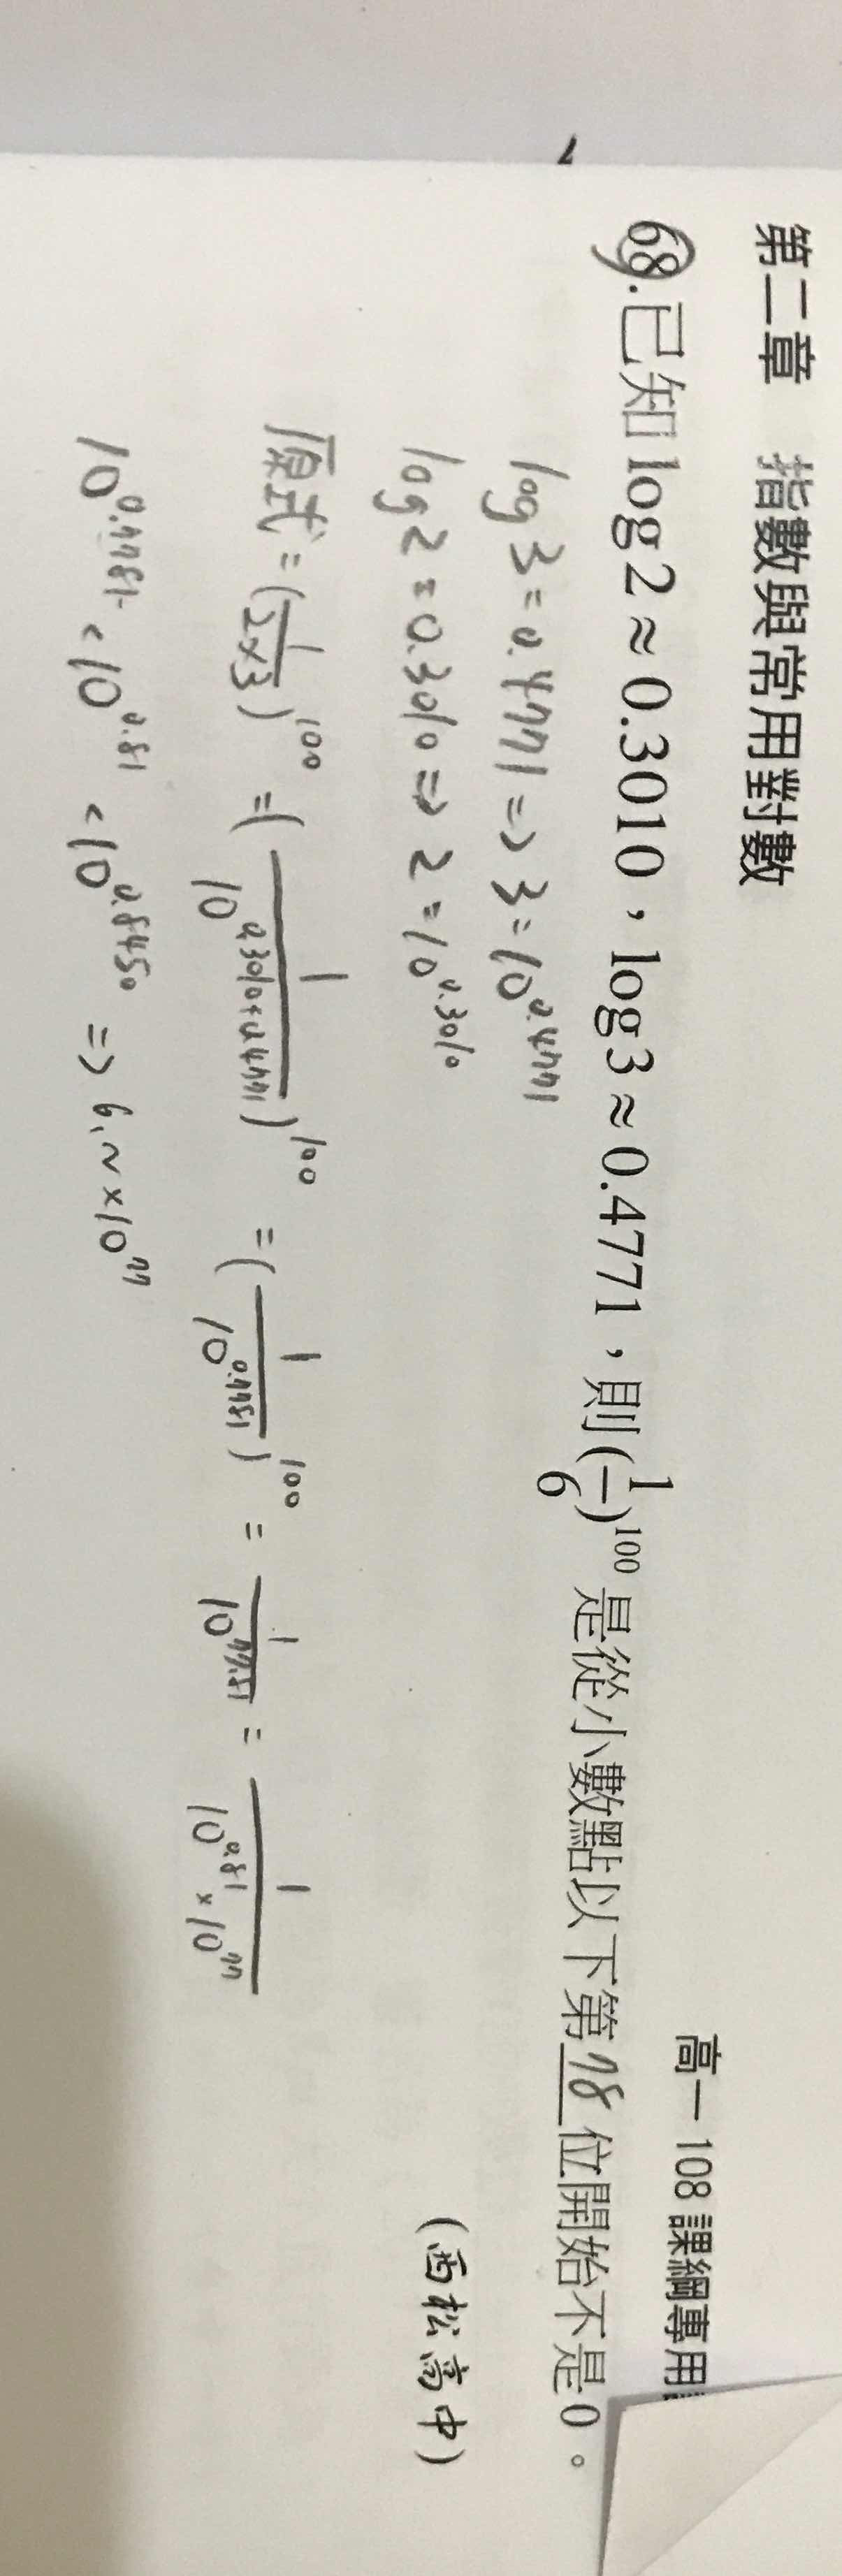 第二章 指數與常用對數
高一 108 課綱專用
68.已知 log2≈0.3010，log3≈0.4771，則(1/6)^100 是從小數點以下第 78 位開始不是0。
(西松高中)
log3=0.4771=>3=10^0.4771
log2=0.3010=>2=10^0.3010
原式=(1/(2×3))^100=(1/10^(0.3010+0.4771))^100=(1/10^0.7781)^100=1/10^77.81=1/(10^0.81×10^77)
10^0.7781<10^0.81<10^0.8450=>6.~×10^77